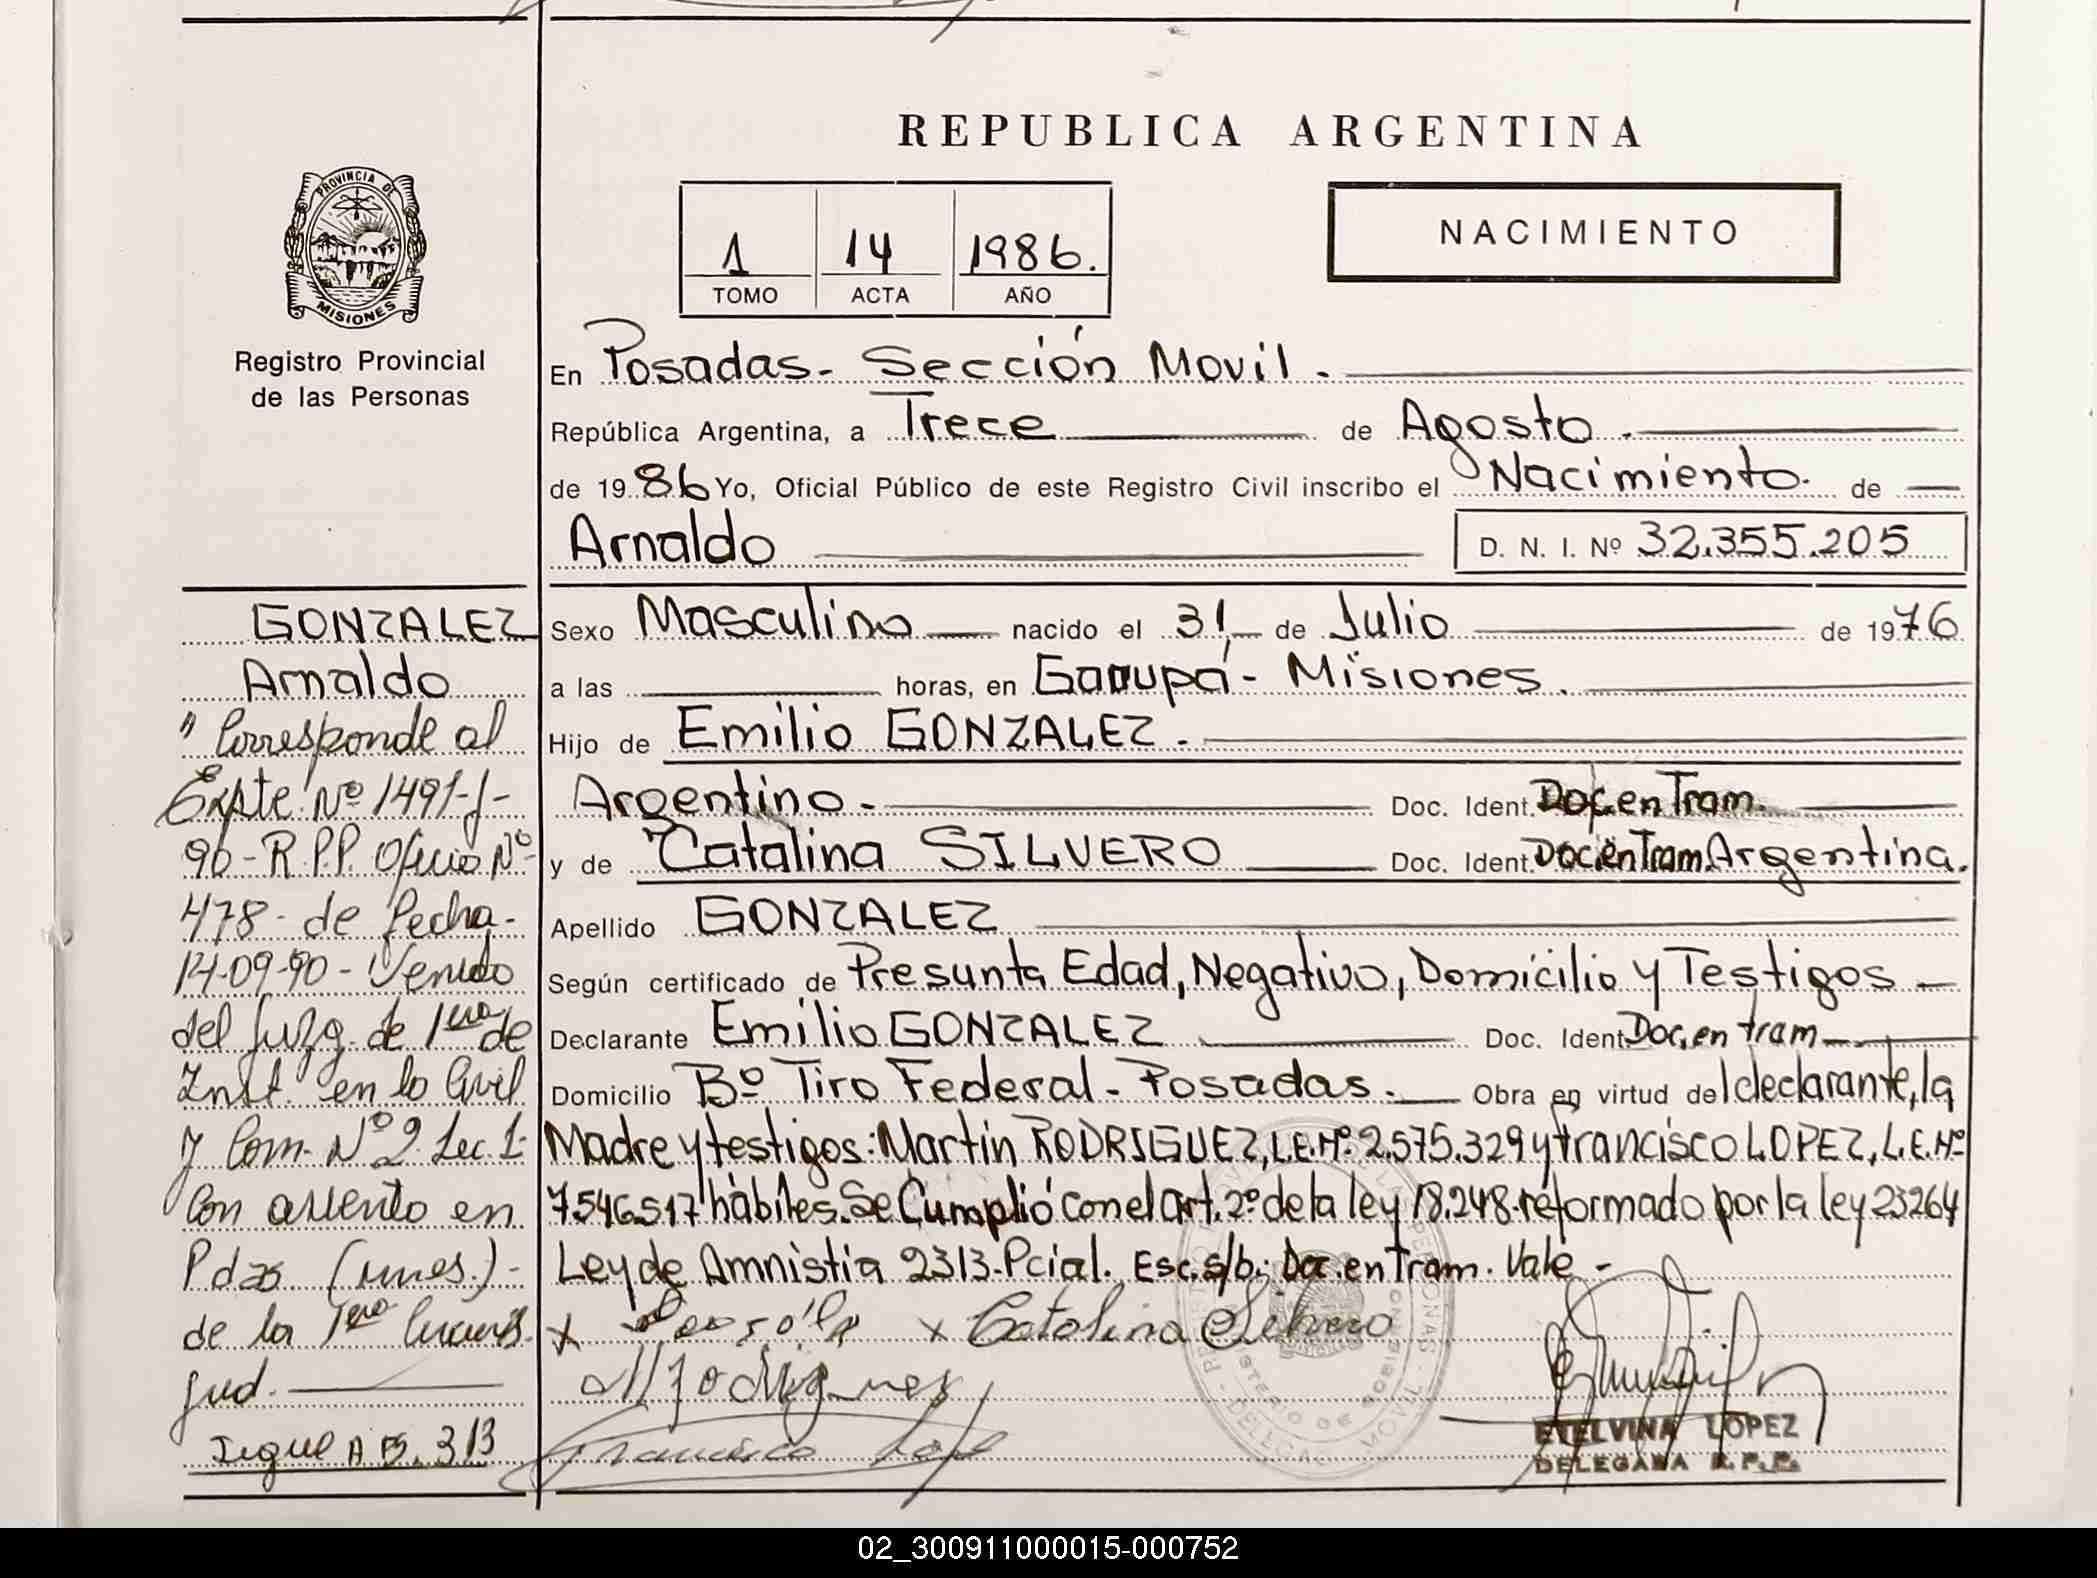 REPUBLICA ARGENTINA
PROVINCIA DE
MISIONES
Registro Provincial
de las Personas
1 14 1986.
TOMO ACTA AÑO
NACIMIENTO
En Posadas - Sección Movil.
República Argentina, a Trece de Agosto.
de 1986 Yo, Oficial Público de este Registro Civil inscribo el Nacimiento. de
Arnaldo D. N. I. Nº 32.355.205
GONZALEZ
Arnaldo
" Corresponde al
Expte. Nº 1491-J-
90 - R.P.P. Oficio Nº
478 - de fecha -
14-09-90 - Venido
del Juzg. de 1era de
Inst. en lo Civil
y Com. Nº 2. Sec. 1-
Con asiento en
Pdas (mnes.) -
de la 1era Circuns.
Jud.
Sigue A Fs. 313
Sexo Masculino nacido el 31 de Julio de 1976
a las horas, en Garupá - Misiones.
Hijo de Emilio GONZALEZ.
Argentino. Doc. Ident. Doc. en Tram.
y de Catalina SILVERO Doc. Ident. Doc. en Tram. Argentina.
Apellido GONZALEZ
Según certificado de Presunta Edad, Negativo, Domicilio y Testigos
Declarante Emilio GONZALEZ Doc. Ident. Doc. en tram
Domicilio Bº Tiro Federal - Posadas. Obra en virtud del declarante, la
Madre y testigos: Martín RODRIGUEZ, L.E.Nº 2.575.329 y francisco LOPEZ, L.E.Nº
7.546.517 hábiles. Se Cumplió con el Art. 2º de la ley 18.248. reformado por la ley 23264
Ley de Amnistia 2313. Pcial. Esc. s/b: Doc. en Tram. Vale -
x x Catalina Silvero
M Rodriguez
Francisco Lop
ETELVINA LOPEZ
DELEGADA R.P.P.
02_300911000015-000752